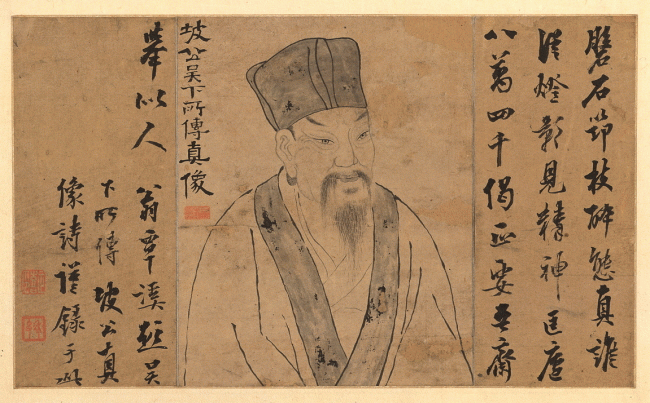 磐石筇枝醉態真誰
從燈影見精神匡廬
八萬四千偈正要吾齋
坡公吴下所傳真像
舉似人
翁覃溪題吴
下所傳坡公真
像詩謹録于此